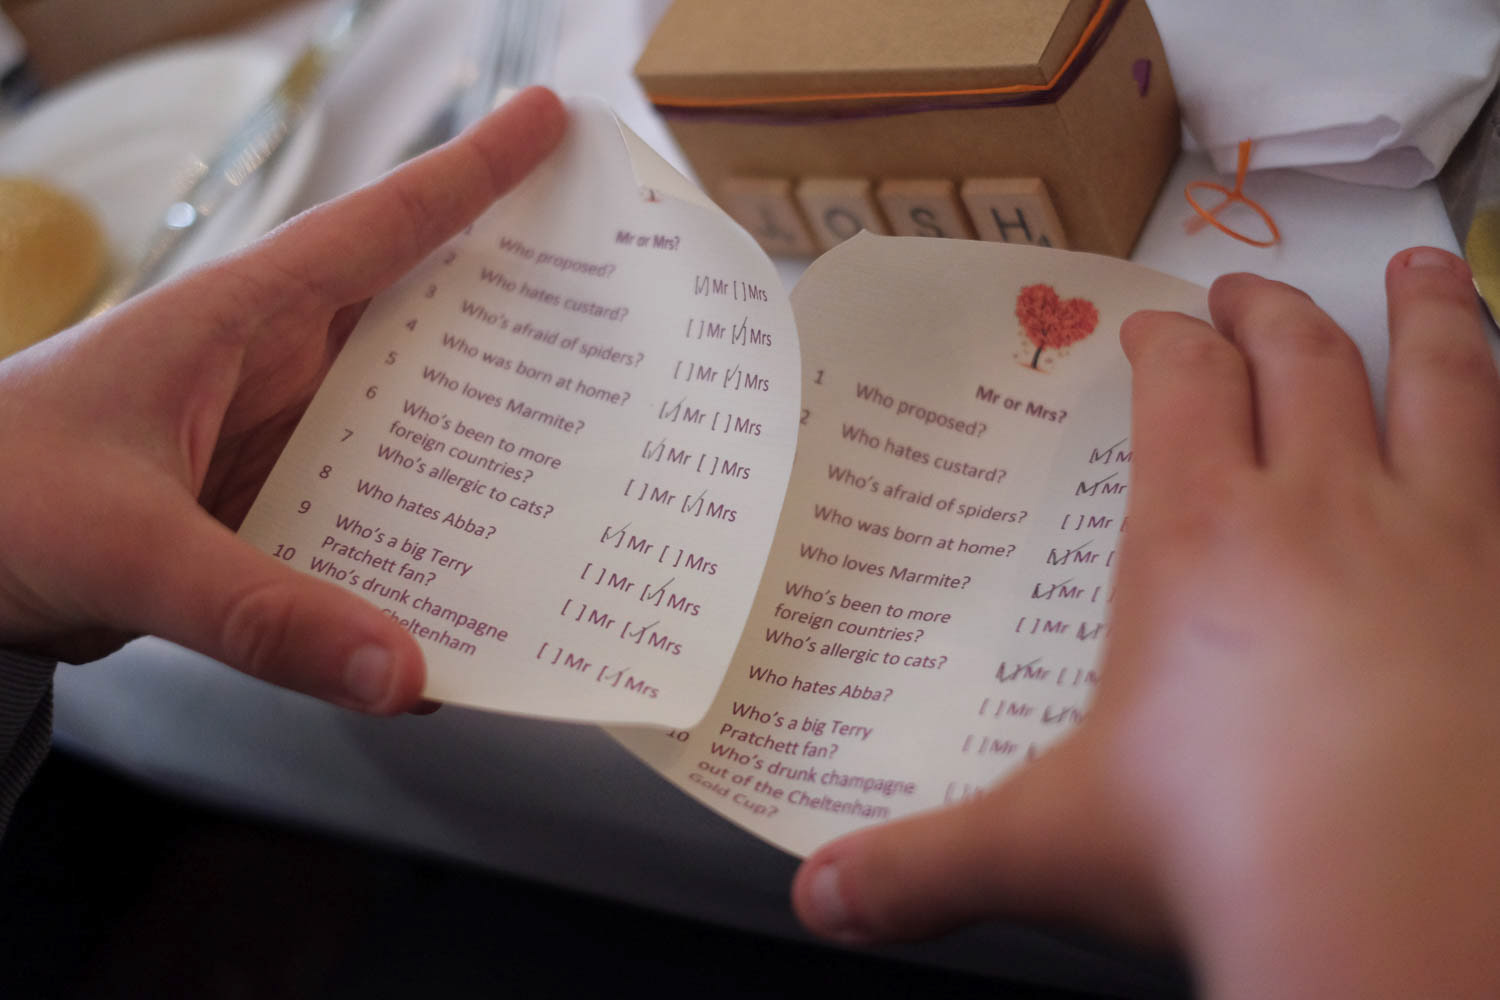 JOSH
Mr or Mrs?
1 Who proposed? [✓]Mr [ ]Mrs
2 Who hates custard? [ ]Mr [✓]Mrs
3 Who's afraid of spiders? [ ]Mr [✓]Mrs
4 Who was born at home? [✓]Mr [ ]Mrs
5 Who loves Marmite? [✓]Mr [ ]Mrs
6 Who's been to more [ ]Mr [✓]Mrs
foreign countries?
7 Who's allergic to cats? [✓]Mr [ ]Mrs
8 Who hates Abba? [ ]Mr [✓]Mrs
9 Who's a big Terry [ ]Mr [✓]Mrs
Pratchett fan?
10 Who's drunk champagne [ ]Mr [✓]Mrs
Cheltenham
Mr or Mrs?
1 Who proposed? [✓]M
2 Who hates custard? [✓]Mr
Who's afraid of spiders? [ ]Mr
Who was born at home? [✓]Mr [
Who loves Marmite? [✓]Mr [ ]
Who's been to more [ ]Mr [✓]
foreign countries?
Who's allergic to cats? [✓]Mr [ ]M
Who hates Abba? [ ]Mr [✓]M
Who's a big Terry [ ]Mr
Pratchett fan?
10 Who's drunk champagne [ ]
out of the Cheltenham
Gold Cup?